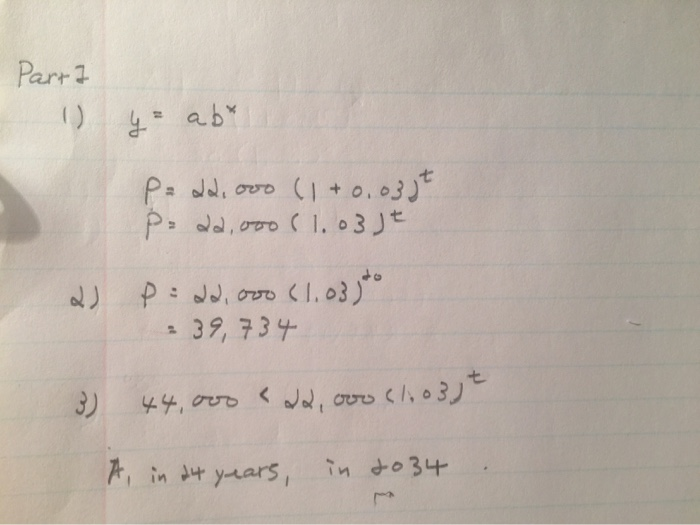 Part I
1) y = ab^x
P = 22,000 (1 + 0.03)^t
P = 22,000 (1.03)^t
2) P = 22,000 (1.03)^20
= 39,734
3) 44,000 < 22,000 (1.03)^t
A, in 24 years, in 2034.